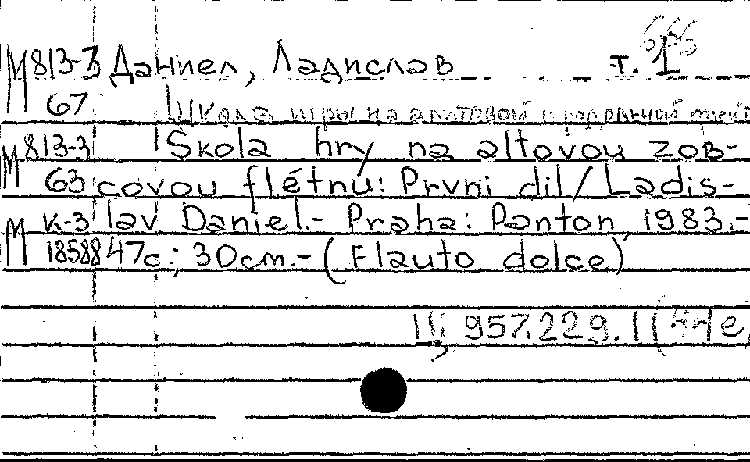 М813-3 Даниел, Ладислав т. 1
67 Школа игры на альтовой
М813-3 Škola hry na altovou zob-
63 covou flétnu: Prvni dil/Ladis-
М к-3 lav Daniel.- Praha: Panton, 1983.-
18588 47с.; 30см.- (Flauto dolce)
957.229.1(